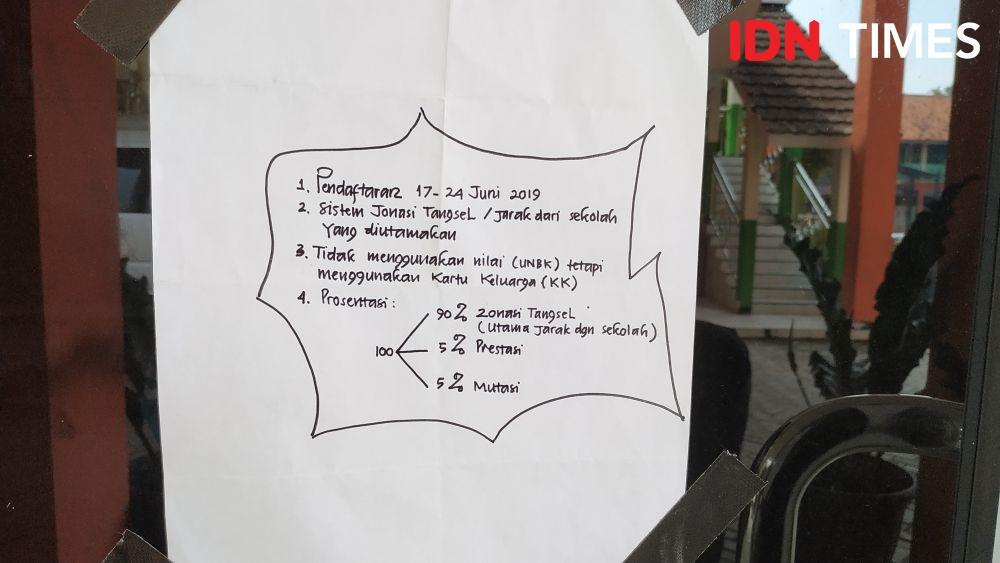 IDN TIMES
1. Pendaftaran 17-24 Juni 2019
2. Sistem Jonasi Tangsel / jarak dari sekolah
Yang diutamakan
3. Tidak menggunakan nilai (UNBK) tetapi
menggunakan Kartu Keluarga (KK)
4. Prosentasi :
100
90% Zonasi Tangsel
(Utama Jarak dgn sekolah)
5% Prestasi
5% Mutasi